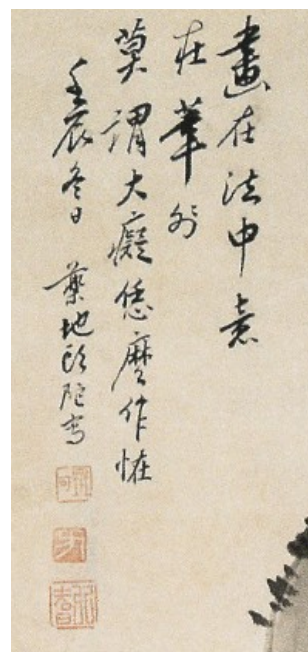 畫在法中意
在筆外
莫謂大癡恁麼作怪
壬辰冬日 藥地頭陀寫